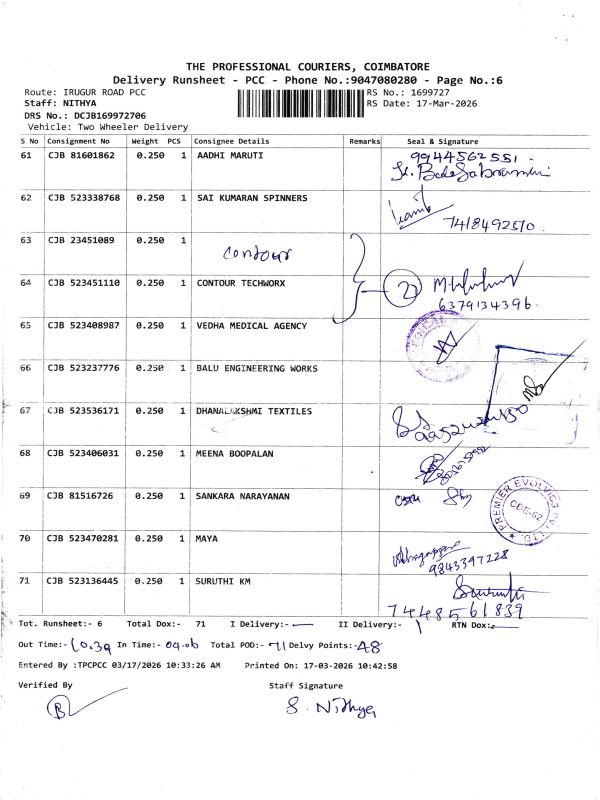 THE PROFESSIONAL COURIERS, COIMBATORE
Delivery Runsheet - PCC - Phone No.:9047080280 - Page No.:6
Route: IRUGUR ROAD PCC
RS No.: 1699727
Staff: NITHYA
RS Date: 17-Mar-2026
DRS No.: DCJB169972706
Vehicle: Two Wheeler Delivery
S No Consignment No Weight PCS Consignee Details Remarks Seal & Signature
61 CJB 81601862 0.250 1 AADHI MARUTI 9944562551
62 CJB 523338768 0.250 1 SAI KUMARAN SPINNERS
7418492510
63 CJB 23451089 0.250 1
contour
64 CJB 523451110 0.250 1 CONTOUR TECHWORX 2
6379134396
65 CJB 523408987 0.250 1 VEDHA MEDICAL AGENCY
66 CJB 523237776 0.250 1 BALU ENGINEERING WORKS
67 CJB 523536171 0.250 1 DHANALAKSHMI TEXTILES
68 CJB 523406031 0.250 1 MEENA BOOPALAN
69 CJB 81516726 0.250 1 SANKARA NARAYANAN
PREMIER EVOLVICS PVT LTD. CBE-62
70 CJB 523470281 0.250 1 MAYA
9843397228
71 CJB 523136445 0.250 1 SURUTHI KM
7448561839
Tot. Runsheet:- 6 Total Dox:- 71 I Delivery:- II Delivery:- RTN Dox:-
Out Time:- 10.39 In Time:- 04.06 Total POD:- 71 Delvy Points:- 48
Entered By :TPCPCC 03/17/2026 10:33:26 AM Printed On: 17-03-2026 10:42:58
Verified By Staff Signature
B S. Nithya